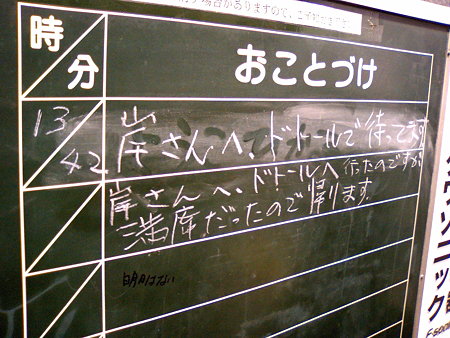 場合がありますので、
時
分
おことづけ
13
42
岸さんへ、ドトールで待ってます
岸さんへ、ドトールへ行ったのですが
満席だったので帰ります。
明日はない
ソニック